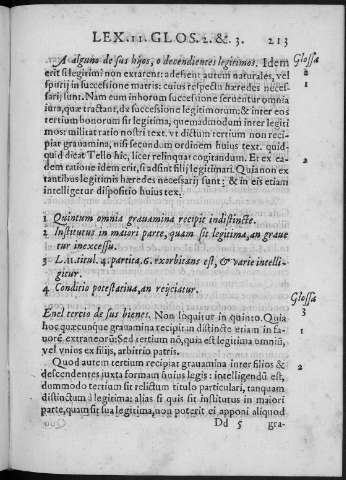 LEX. 11. GLOS. 2. & 3. 213
A alguno de sus hijos, o decendientes legitimos. Idem Glossa
erit si legitimi non extarent: adessent autem naturales, vel 2
spurij in successione matris: cuius respectu hæredes neces- 1
sarij sunt. Nam eum in horum successione seruentur omnia
iura, quæ tractant, de successione legitimorum: & inter eos
tertium bonorum sit legitima, quemadmodum inter legiti
mos: militat ratio nostri text. vt dictum tertium non reci-
piat grauamina, nisi secundum ordinem huius text. quid-
quid dicat Tello hic, licet relinquat cogitandum. Et ex ea- 2
dem ratione idem erit, si adsint filij legitimari. Quia non ex
tantibus legitimis hæredes necessarij sunt: & in eis etiam
intelligetur dispositio huius tex.
1 Quintum omnia grauamina recipit indistincte.
2 Institutus in maiori parte, quam sit legitima, an graue
tur in excessu.
3 L. 11. titul. 4. partita. 6. exorbitans est, & varie intelli-
gitur.
4 Conditio potestatiua, an reijciatur.
Glossa
En el tercio de sus bienes. Non loquitur in quinto. Quia 3
hoc quæcunque grauamina recipit in distincte etiam in fa- 1
uorẽ extraneorũ: Sed tertium nõ, quia est legitima omniũ,
vel vnius ex filijs, arbitrio patris.
Quod autem tertium recipiat grauamina inter filios & 2
descendentes juxta formam huius legis: intelligendũ est,
dummodo tertium sit relictum titulo particulari, tanquam
distinctum à legitima: alias si quis sit institutus in maiori
parte, quam sit sua legitima, non poterit ei apponi aliquod
Dd 5 gra-